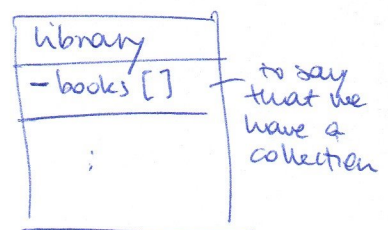 library
- books []
- to say
that we
have a
collection
: